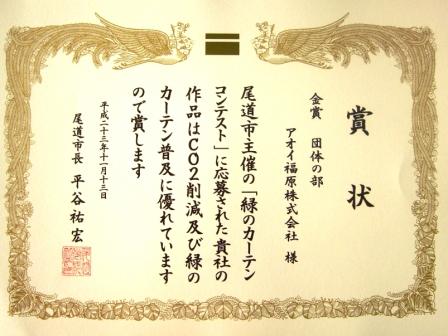 賞状
金賞 団体の部
アオイ福原株式会社 様
尾道市主催の「緑のカーテン
コンテスト」に応募された貴社の
作品はCO2削減及び緑の
カーテン普及に優れています
ので賞します
平成二十三年十一月十三日
尾道市長 平谷祐宏